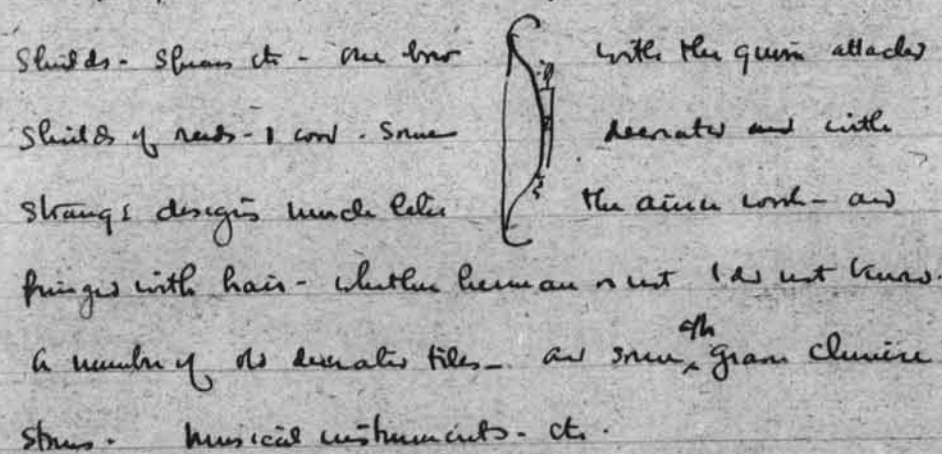 Shields - Spears etc - one bow with the quiver attached
Shields of reeds - & wood - Some decorated and with
Strange designs much like the ainu work - and
fringed with hair - whether human or not I do not know -
A number of old decorated tiles - and some of the Chinese
Musical instruments - etc.